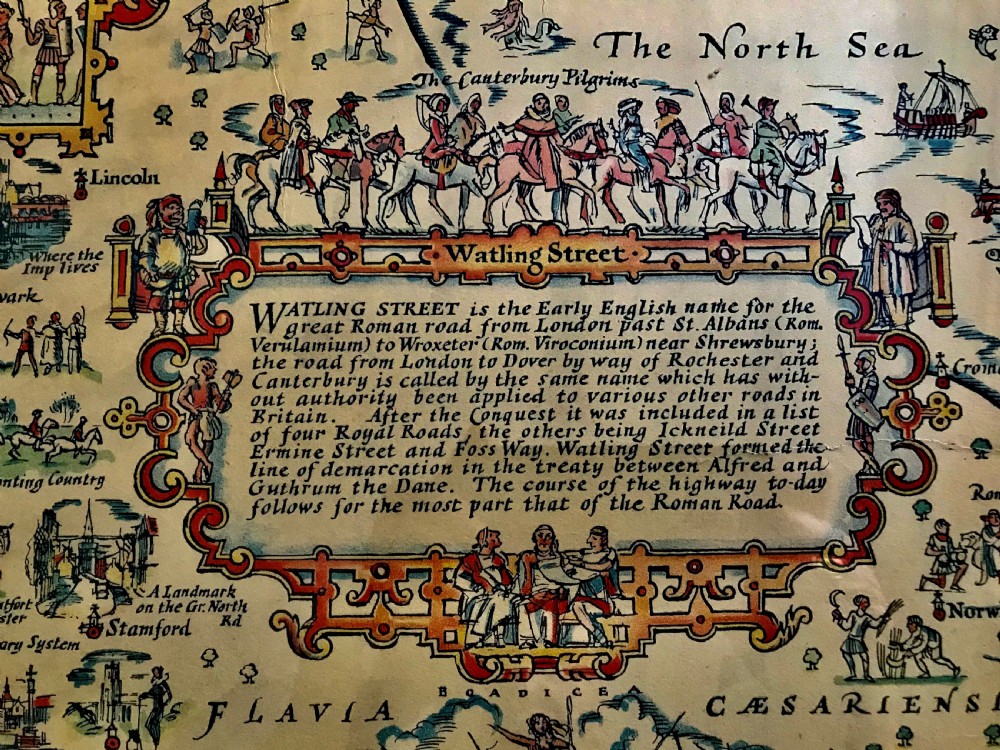 The North Sea
The Canterbury Pilgrims
Lincoln
Where the
Imp lives
Watling Street
WATLING STREET is the Early English name for the
great Roman road from London past St. Albans (Rom.
Verulamium) to Wroxeter (Rom. Viroconium) near Shrewsbury;
the road from London to Dover by way of Rochester and
Canterbury is called by the same name which has with-
out authority been applied to various other roads in
Britain. After the Conquest it was included in a list
of four Royal Roads, the others being Ickneild Street
Ermine Street and Foss Way. Watling Street formed the
line of demarcation in the treaty between Alfred and
Guthrum the Dane. The course of the highway to-day
follows for the most part that of the Roman Road.
wark
Crom
nting Country
Rom
A Landmark
on the Gr. North
Rd
Stamford
Norw
ary System
BOADICEA
FLAVIA CÆSARIENS